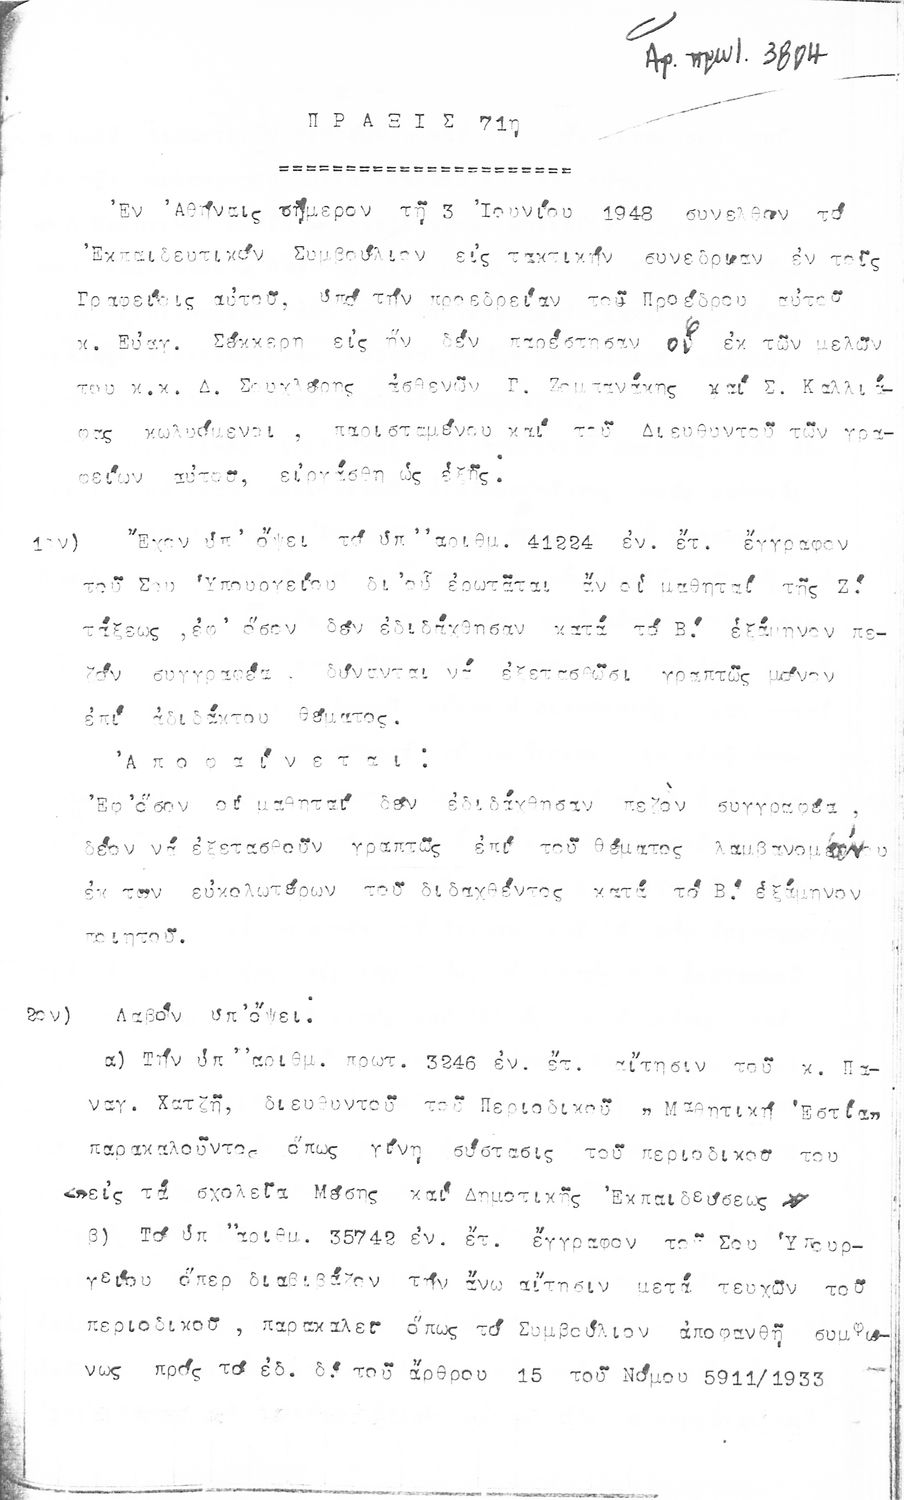 Ἀρ. πρωτ. 3804
Π Ρ Α Ξ Ι Σ 71η
======================
Ἐν Ἀθήναις σήμερον τῇ 3 Ἰουνίου 1948 συνελθὸν τό
Ἐκπαιδευτικόν Συμβούλιον εἰς τακτικήν συνεδρίαν ἐν τοῖς
Γραφείοις αὐτοῦ, ὑπό τήν προεδρείαν τοῦ Προέδρου αὐτοῦ
κ. Εὐαγ. Σέκκερη εἰς ἥν δέν παρέστησαν οἱ ἐκ τῶν μελῶν
του κ.κ. Δ. Σουκλέρης ἀσθενῶν Γ. Ζομπανάκης καί Σ. Καλλιά-
φας κωλυόμενοι, παρισταμένου καί τοῦ Διευθυντοῦ τῶν γρα-
φείων αὐτοῦ, εἰργάσθη ὡς ἑξῆς:
1ον) Ἔχον ὑπ' ὄψει τό ὑπ' ἀριθμ. 41224 ἐν. ἔτ. ἔγγραφον
τοῦ Σου Ὑπουργείου δι'οὗ ἐρωτᾶται ἄν οἱ μαθηταί τῆς Ζ!
τάξεως ,ἐφ' ὅσον δέν ἐδιδάχθησαν κατά τό Β! ἑξάμηνον πε-
ζόν συγγραφέα . δύνανται νά ἐξετασθῶσι γραπτῶς μόνον
ἐπί ἀδιδάκτου θέματος.
Ἀ π ο φ α ί ν ε τ α ι :
Ἐφ'ὅσον οἱ μαθηταί δέν ἐδιδάχθησαν πεζὸν συγγραφέα ,
δέον νά ἐξετασθοῦν γραπτῶς ἐπί τοῦ θέματος λαμβανομένου
ἐκ των εὐκολωτέρων τοῦ διδαχθέντος κατά τό Β! ἑξάμηνον
ποιητοῦ.
2ον) Λαβόν ὑπ'ὄψει:
α) Τήν ὑπ' ἀριθμ. πρωτ. 3246 ἐν. ἔτ. αἴτησιν τοῦ κ. Πα-
ναγ. Χατζῆ, διευθυντοῦ τοῦ Περιοδικοῦ „ Μαθητική Ἑστία„
παρακαλοῦντος ὅπως γίνῃ σύστασις τοῦ περιοδικοῦ του
εἰς τά σχολεῖα Μέσης καί Δημοτικῆς Ἐκπαιδεύσεως
β) Τό ὑπ' ἀριθμ. 35742 ἐν. ἔτ. ἔγγραφον τοῦ Σου Ὑπουρ-
γείου ὅπερ διαβιβάζον τήν ἄνω αἴτησιν μετά τευχῶν τοῦ
περιοδικοῦ , παρακαλεῖ ὅπως τό Συμβούλιον ἀποφανθῇ συμφώ-
νως πρός τό ἐδ. δ! τοῦ ἄρθρου 15 τοῦ Νόμου 5911/1933